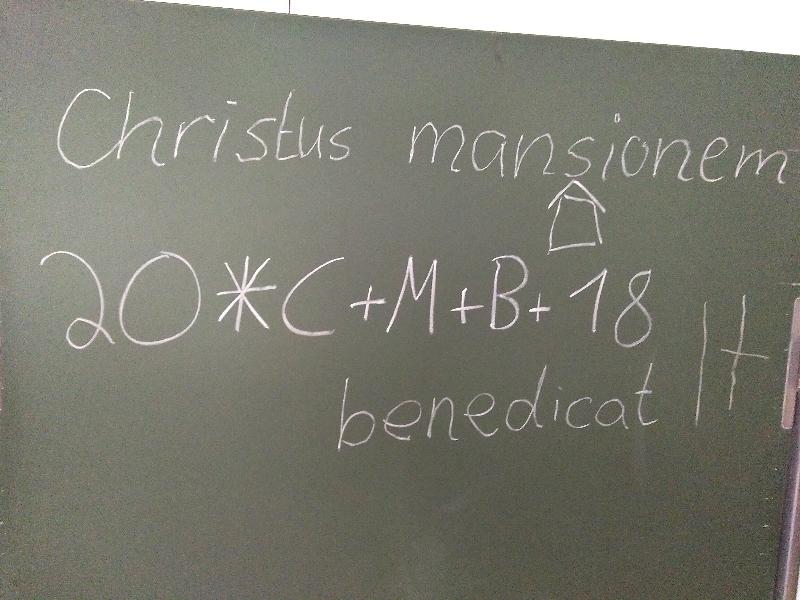 Christus mansionem
20*C+M+B+18
benedicat